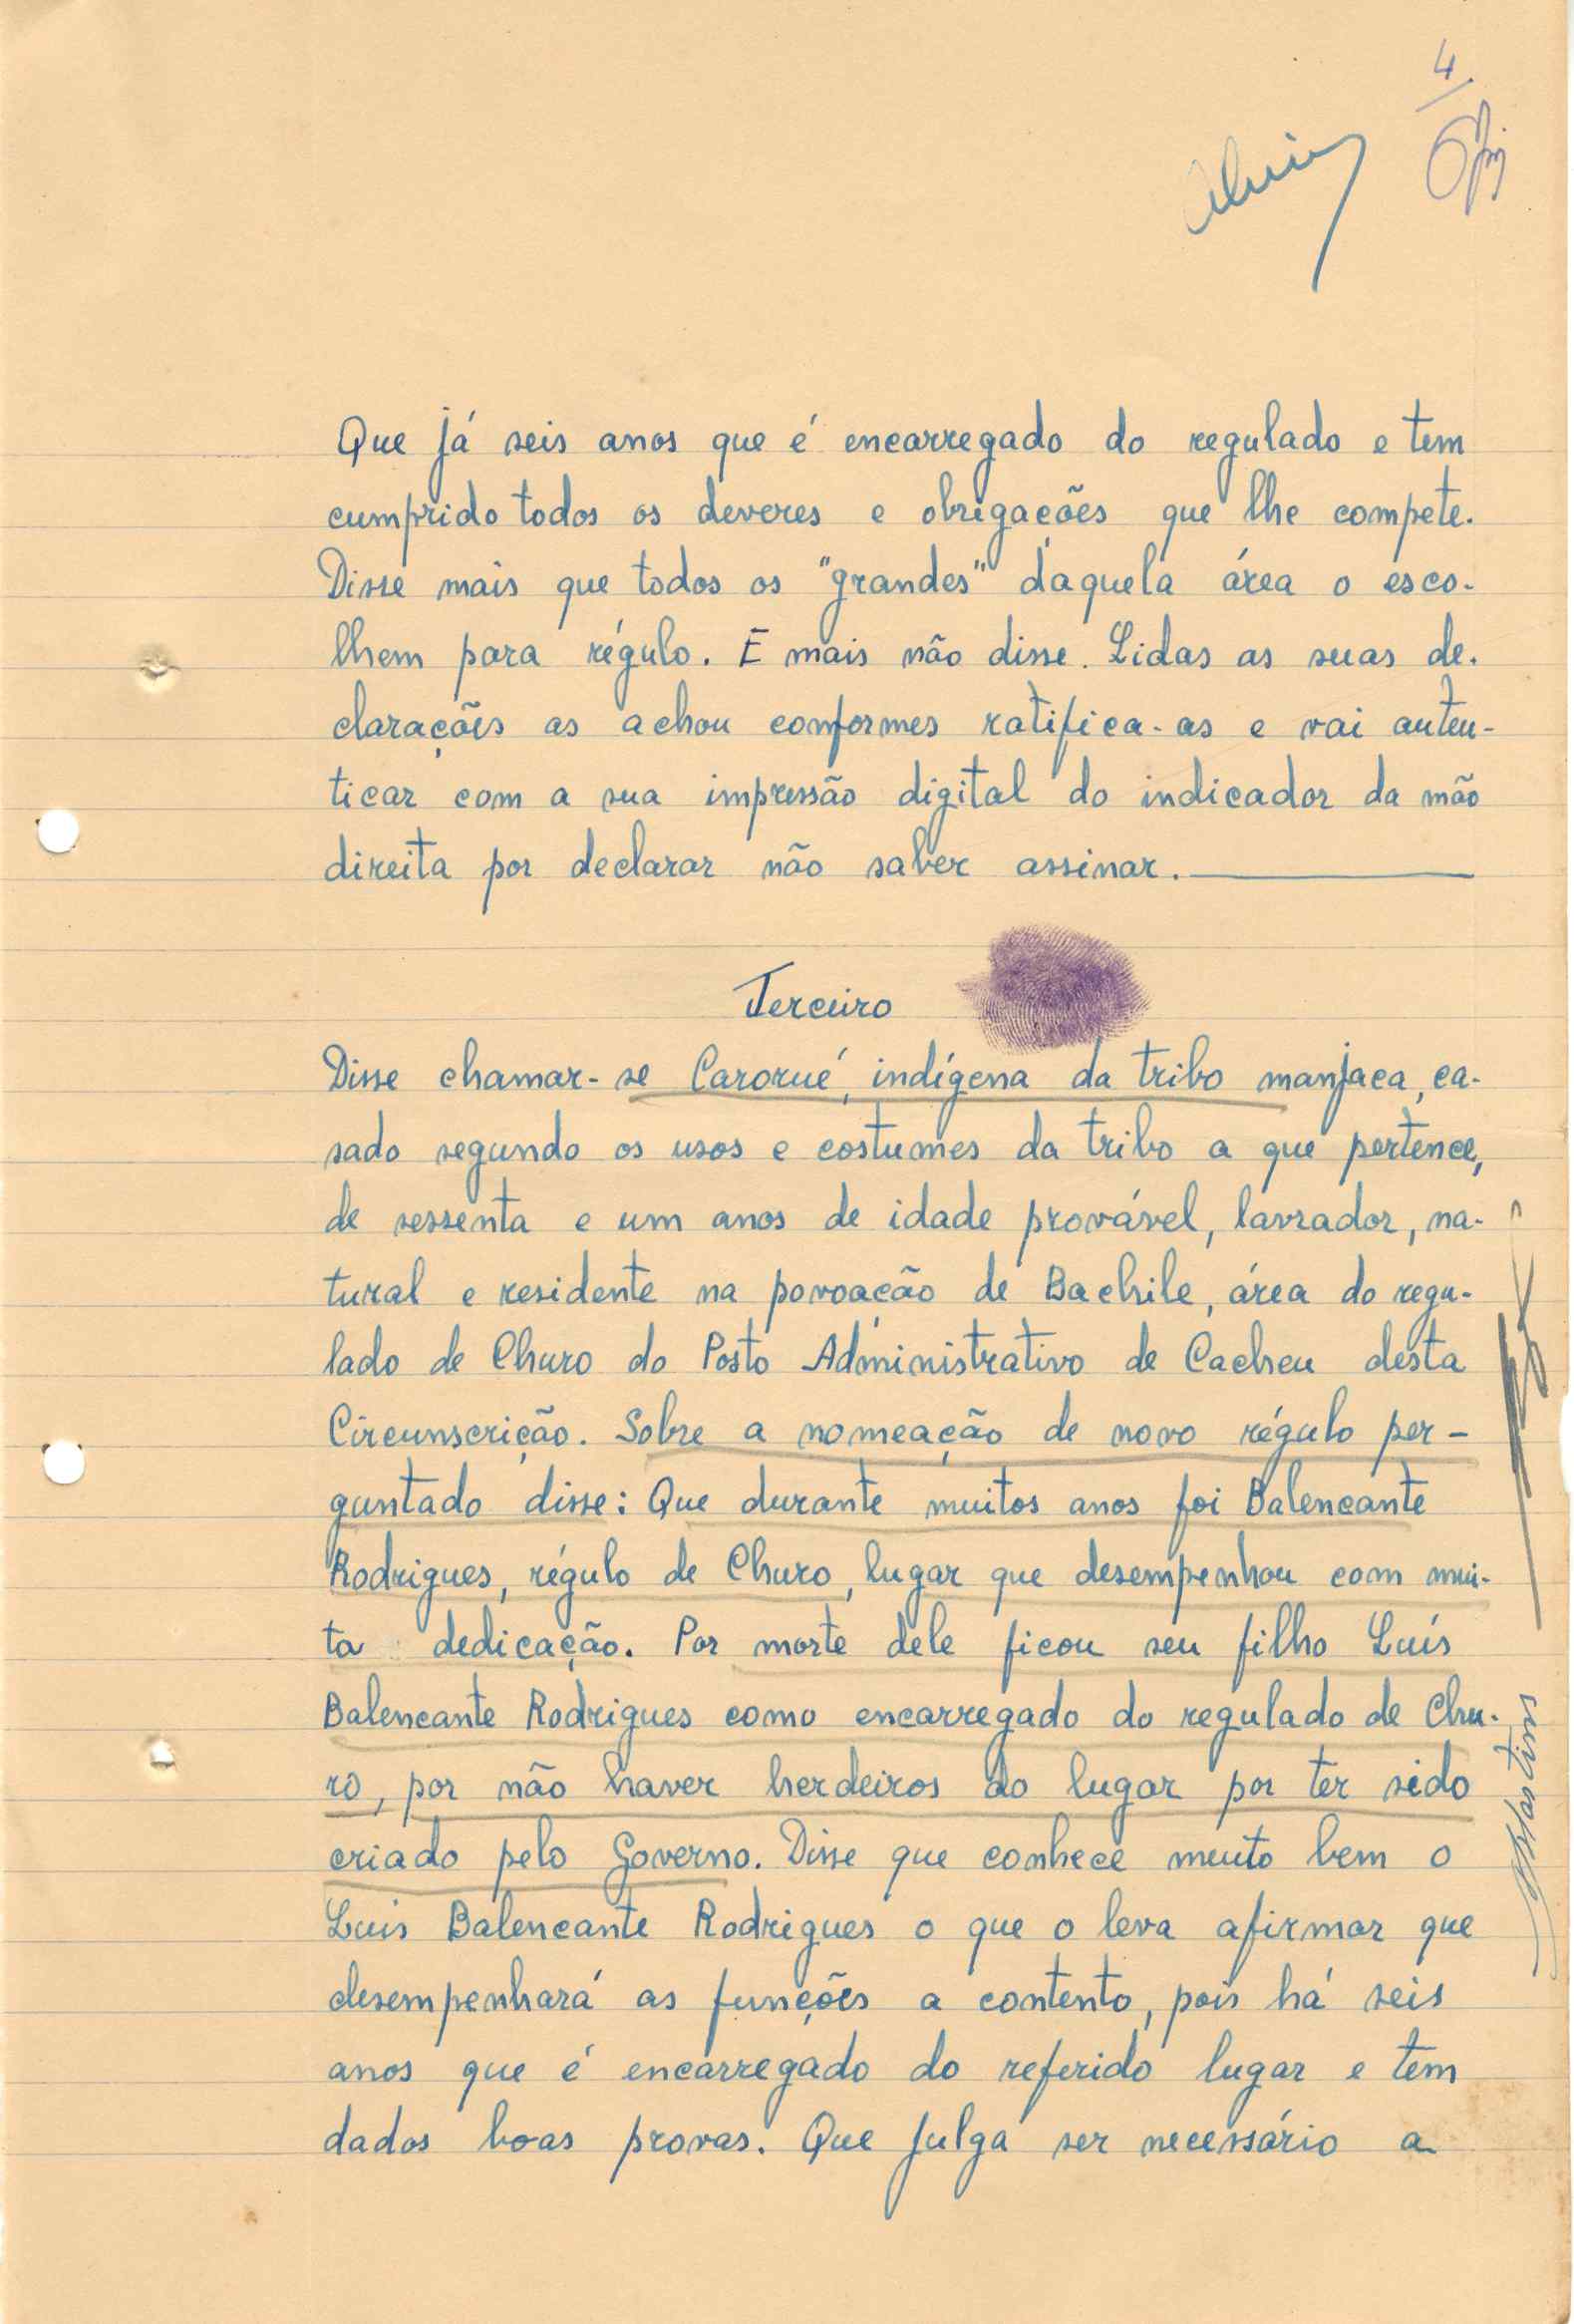 4
Que já seis anos que é encarregado do regulado e tem
cumprido todos os deveres e obrigações que lhe compete.
Disse mais que todos os "grandes" daquela área o esco-
lhem para régulo. E mais não disse. Lidas as suas de-
clarações as achou conformes ratifica-as e vai auten-
ticar com a sua impressão digital do indicador da mão
direita por declarar não saber assinar.
Terceiro
Disse chamar-se Carorué, indígena da tribo manjaca, ca-
sado segundo os usos e costumes da tribo a que pertence,
de sessenta e um anos de idade provável, lavrador, na-
tural e residente na povoação de Bachile, área do regu-
lado de Churo do Posto Administrativo de Cacheu desta
Circunscrição. Sobre a nomeação de novo régulo per-
guntado disse: Que durante muitos anos foi Balencante
Rodrigues, régulo de Churo, lugar que desempenhou com mui-
ta dedicação. Por morte dele ficou seu filho Luís
Balencante Rodrigues como encarregado do regulado de Chu-
ro, por não haver herdeiros do lugar por ter sido
criado pelo Governo. Disse que conhece muito bem o
Luís Balencante Rodrigues o que o leva afirmar que
desempenhará as funções a contento, pois há seis
anos que é encarregado do referido lugar e tem
dados boas provas. Que julga ser necessário a
Martins